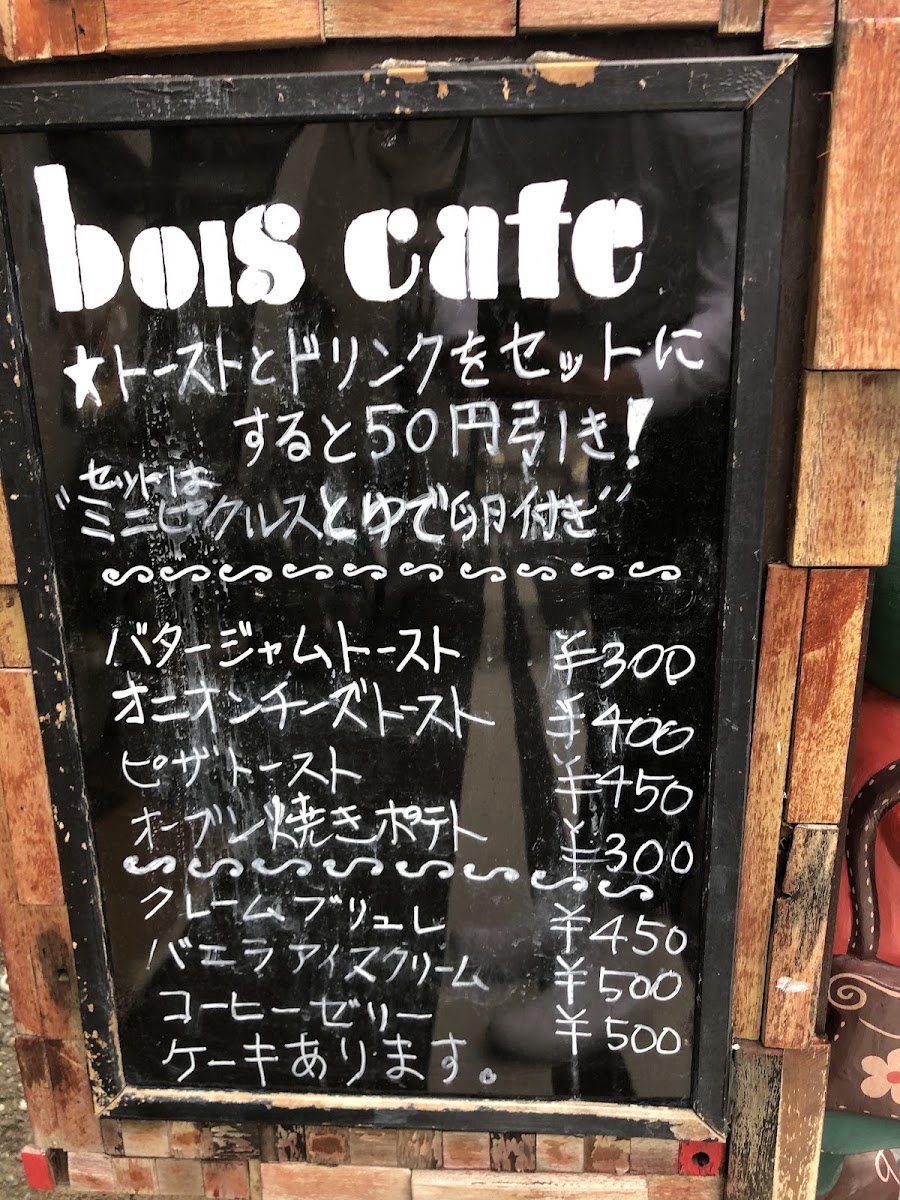 bois cafe
★トーストとドリンクをセットに
すると50円引き!
セットは
"ミニピクルスとゆで卵付き"
バタージャムトースト ¥300
オニオンチーズトースト ¥400
ピザトースト ¥450
オーブン焼きポテト ¥300
クレームブリュレ ¥450
バエラアイスクリーム ¥500
コーヒーゼリー ¥500
ケーキあります。